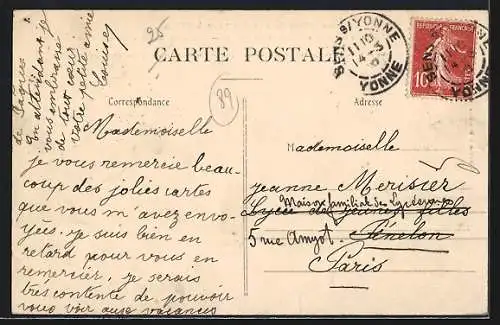 25
CARTE POSTALE
SENS S/YONNE
11 15
4 - 3
YONNE
10
89
Correspondance
Adresse
Mademoiselle
je vous remercie beau-
coup des jolies cartes
que vous m'avez envo-
yées. je suis bien en
retard pour vous en
remercier, je serais
très contente de pouvoir
vous voir aux vacances
de Pâques
En attendant je
vous embrasse
de tout cœur
votre petite amie
Louise
Mademoiselle
Jeanne Merisier
Maison familiale de
Lycée de jeunes filles
5 rue Amyot. Fénelon
Paris